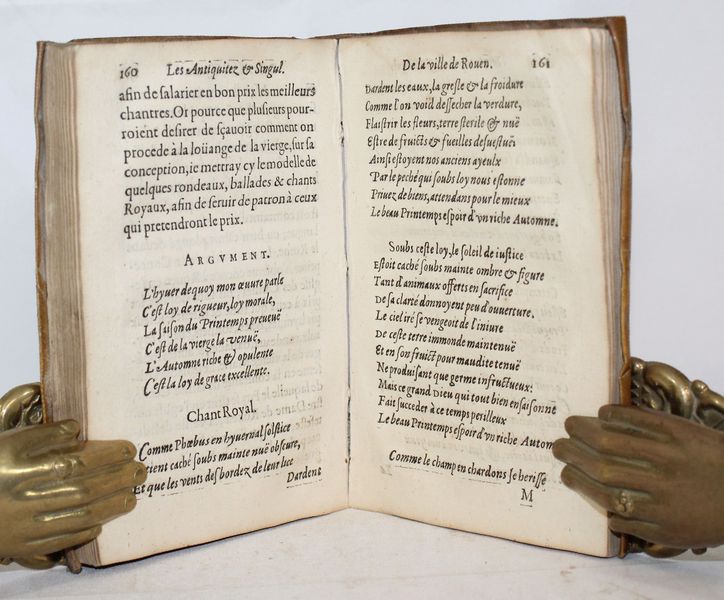 160 Les Antiquitez & Singul.
afin de salarier en bon prix les meilleurs
chantres. Or pource que plusieurs pour-
roient desirer de sçauoir comment on
procede à la loüange de la vierge, sur sa
conception, ie mettray cy le modelle de
quelques rondeaux, ballades & chants
Royaux, afin de seruir de patron à ceux
qui pretendront le prix.
ARGVMENT.
L'hyuer dequoy mon œuure parle
C'est loy de rigueur, loy morale,
La saison du Printemps preueuë
C'est de la vierge la venuë,
L'Automne riche & opulente
C'est la loy de grace excellente.
Chant Royal.
Comme Phœbus en hyuernal solstice
tient caché soubs mainte nuë obscure,
Et que les vents desbordez de leur lice
Dardent
De la ville de Rouen. 161
Dardent les eaux, la gresle & la froidure
Comme l'on void dessecher la verdure,
Flaistrir les fleurs, terre sterile & nuë
Estre de fruicts & fueilles desuestuë
Ainsi estoyent nos anciens ayeulx
Par le peché qui soubs loy nous estonne
Priuez de biens, attendans pour le mieux
Le beau Printemps espoir d'vn riche Automne.
Soubs ceste loy, le soleil de iustice
Estoit caché soubs mainte ombre & figure
Tant d'animaux offerts en sacrifice
De sa clarté donnoyent peu d'ouuerture.
Le ciel iré se vengeoit de l'iniure
De ceste terre immonde maintenuë
Et en son fruict pour maudite tenuë
Ne produisant que germe infructueux:
Mais ce grand Dieu qui tout bien ensaisonne
Fait succeder à ce temps perilleux
Le beau Printemps espoir d'vn riche Autom
Comme le champ en chardons se herisse
M